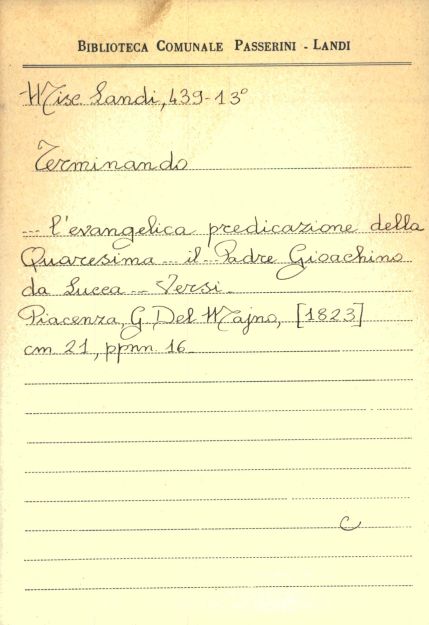 BIBLIOTECA COMUNALE PASSERINI - LANDI
Misc Landi, 439-13°
Terminando
... l'evangelica predicazione della
Quaresima ... il ... Padre Gioachino
da Lucca ... Versi.
Piacenza, G. Del Majno, [1823]
cm 21, ppnn 16.
C